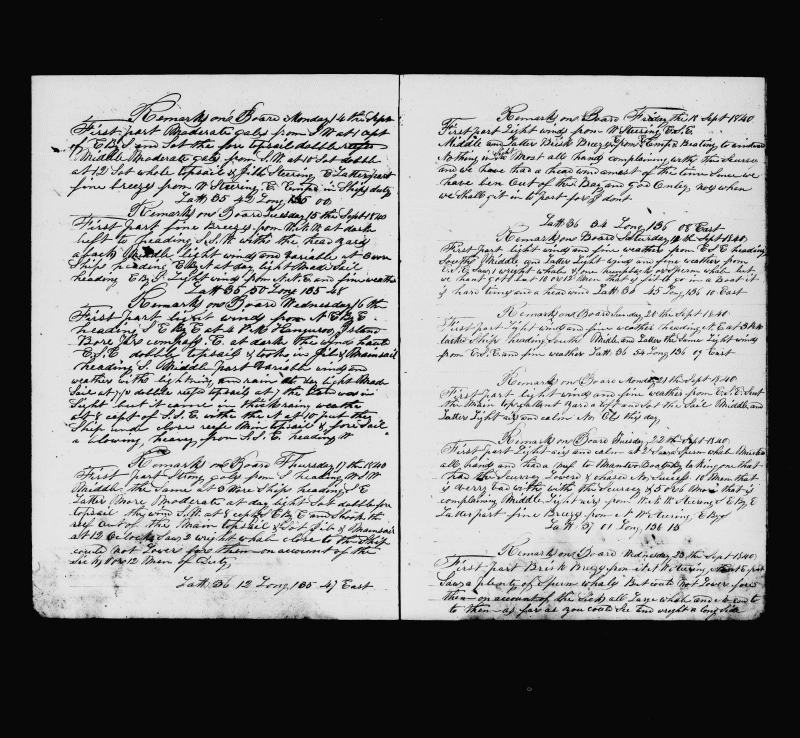 Remarks on Board Monday 14 the Sept
First part Moderate gales from S.W at 1 Capt
E B S and Sot the fore topsail dobble reefes
Middle Moderate gales from S.W at 10 Sot dobble
at 12 Sot whole topsail & Jib Steering E Latter part
fine breezes from W Steering E Emp in Ships duty
Latt 35 42 Long 135 00
Remarks on Board Tuesday 15 the Sept 1840
First part fine Breezes from W.N.W at dark
left to heading S.S.W withe the head yards
aback Middle light winds and variable at 12 wore
Ships heading E B N at day light Maid Sail
heading E B S Light winds from N.N.E and fine weather
Latt 35 50 Long 135 48
Remarks on Board Wednesday 16 th
First part light winds from N E B E
heading S E B E at 4 P.M Hanguroo Island
Bore by compass E. at dark the wind hauld
E.S.E dobble topsail & tooke in Jib & Mainsail
heading S. Middle part Variable winds and
weather withe lightning and rain at day light Maid
Sail at 7 dobble reefd topsails at 7 the land was in
Sight but it came in thick rain weathe
at 8 Capt S.S.E. withe the at 10 put the
Ship under close reefe Main topsail & foresail
a blowing heavy from S.S.E. heading W
Remarks on Board Thursday 17 th 1840
First part Strong gales from S heading W.S.W
Middle the Same at 3 Wore Ships heading S E
Latter More Moderate at day light Sot dobble fore
topsail the wind S.W. at 8 Capt E B E and Shook the
reef out of the Main topsail & Sot Jib & Mainsail
at 12 Oclock Saw 2 wright whale close to the Ship
could not Lower fore them on account of the
Sick 10 or 12 Men of Duty
Latt 36 12 Long 135 47 East
Remarks on Board Friday the 18 Sept 1840
First part Light winds from W Steering E.S.E.
Middle and Latter Brisk Breezes from E Emp Beating to windward
Nothing in Sight Most all hands complaining withe the Scurvea
and we have had a head wind most of the time Since we
have ben Out of the Bay and God Onley nos when
we Shall git in to part for I dont
Latt 36 34 Long 136 08 East
Remarks on Board Saturday 19 th Sept 1840
First part light winds and fine weather from E.S.E heading
South Middle and Latter Light winds and fine weather from
E.S.E. Saw 1 wright whale & Some humpback or Sperm whale but
we hant got but 10 or 12 Men that is fit to go in a Boat it
is hard times and a head wind Latt 36 45 Long 136 10 East
Remarks on Board Sunday 20 th Sept 1840
First part Light winds and fine weather heading N.E at 3 P.M
tacke Ship heading South Middle and Latter the Same Light winds
from E.S.E and fine weather Latt 36 54 Long 136 09 East
Remarks on Board Monday 21 the Sept 1840
First part light winds and fine weather from E.S.E. Sent
the Main topgallant Yard aloft and Sot the Sail Middle and
Latter Light airs and calm No Ob this day
Remarks on Board Tuesday 22 th Sept 1840
First part Light airs and calm at 2 Saw Sperm whale
all hands and had a nuf to Man two Boats by taking one that
had the Scurvy Lowered & chased No Sucsess 10 Men that
is verry bad withe the Scurvea & 5 or 6 More that is
complaining Middle Light airs from N.W. & W Steering E by E
Latter part fine Breezes from N W Steering E By S
Latt 37 01 Long 136 15
Remarks on Board Wednesday 23 the Sept 1840
First part Brisk Breezes from W.S.W Steering
Saw a plenty of Sperm whales But could Not Lower fore
them on account of the Sick all Large whale
to them as far as you could See